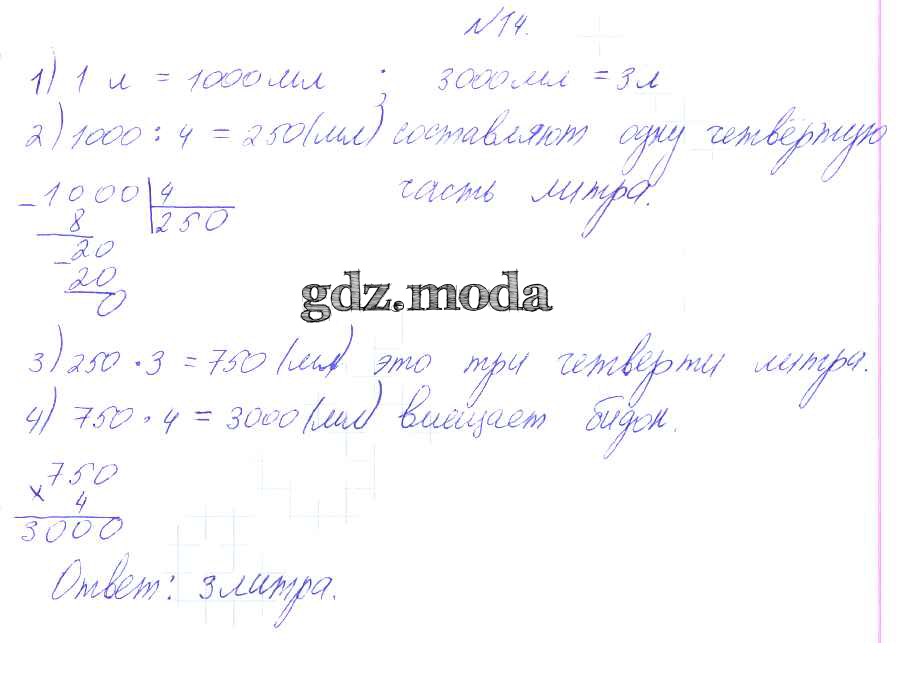 №14.
1) 1 л = 1000 мл ; 3000 мл = 3 л
2) 1000 : 4 = 250 (мл) составляют одну четвёртую
часть литра.
- 1000 | 4
8 | 250
- 20
20
0
gdz.moda
3) 250 · 3 = 750 (мл) это три четверти литра.
4) 750 · 4 = 3000 (мл) вмещает бидон.
750
× 4
3000
Ответ: 3 литра.